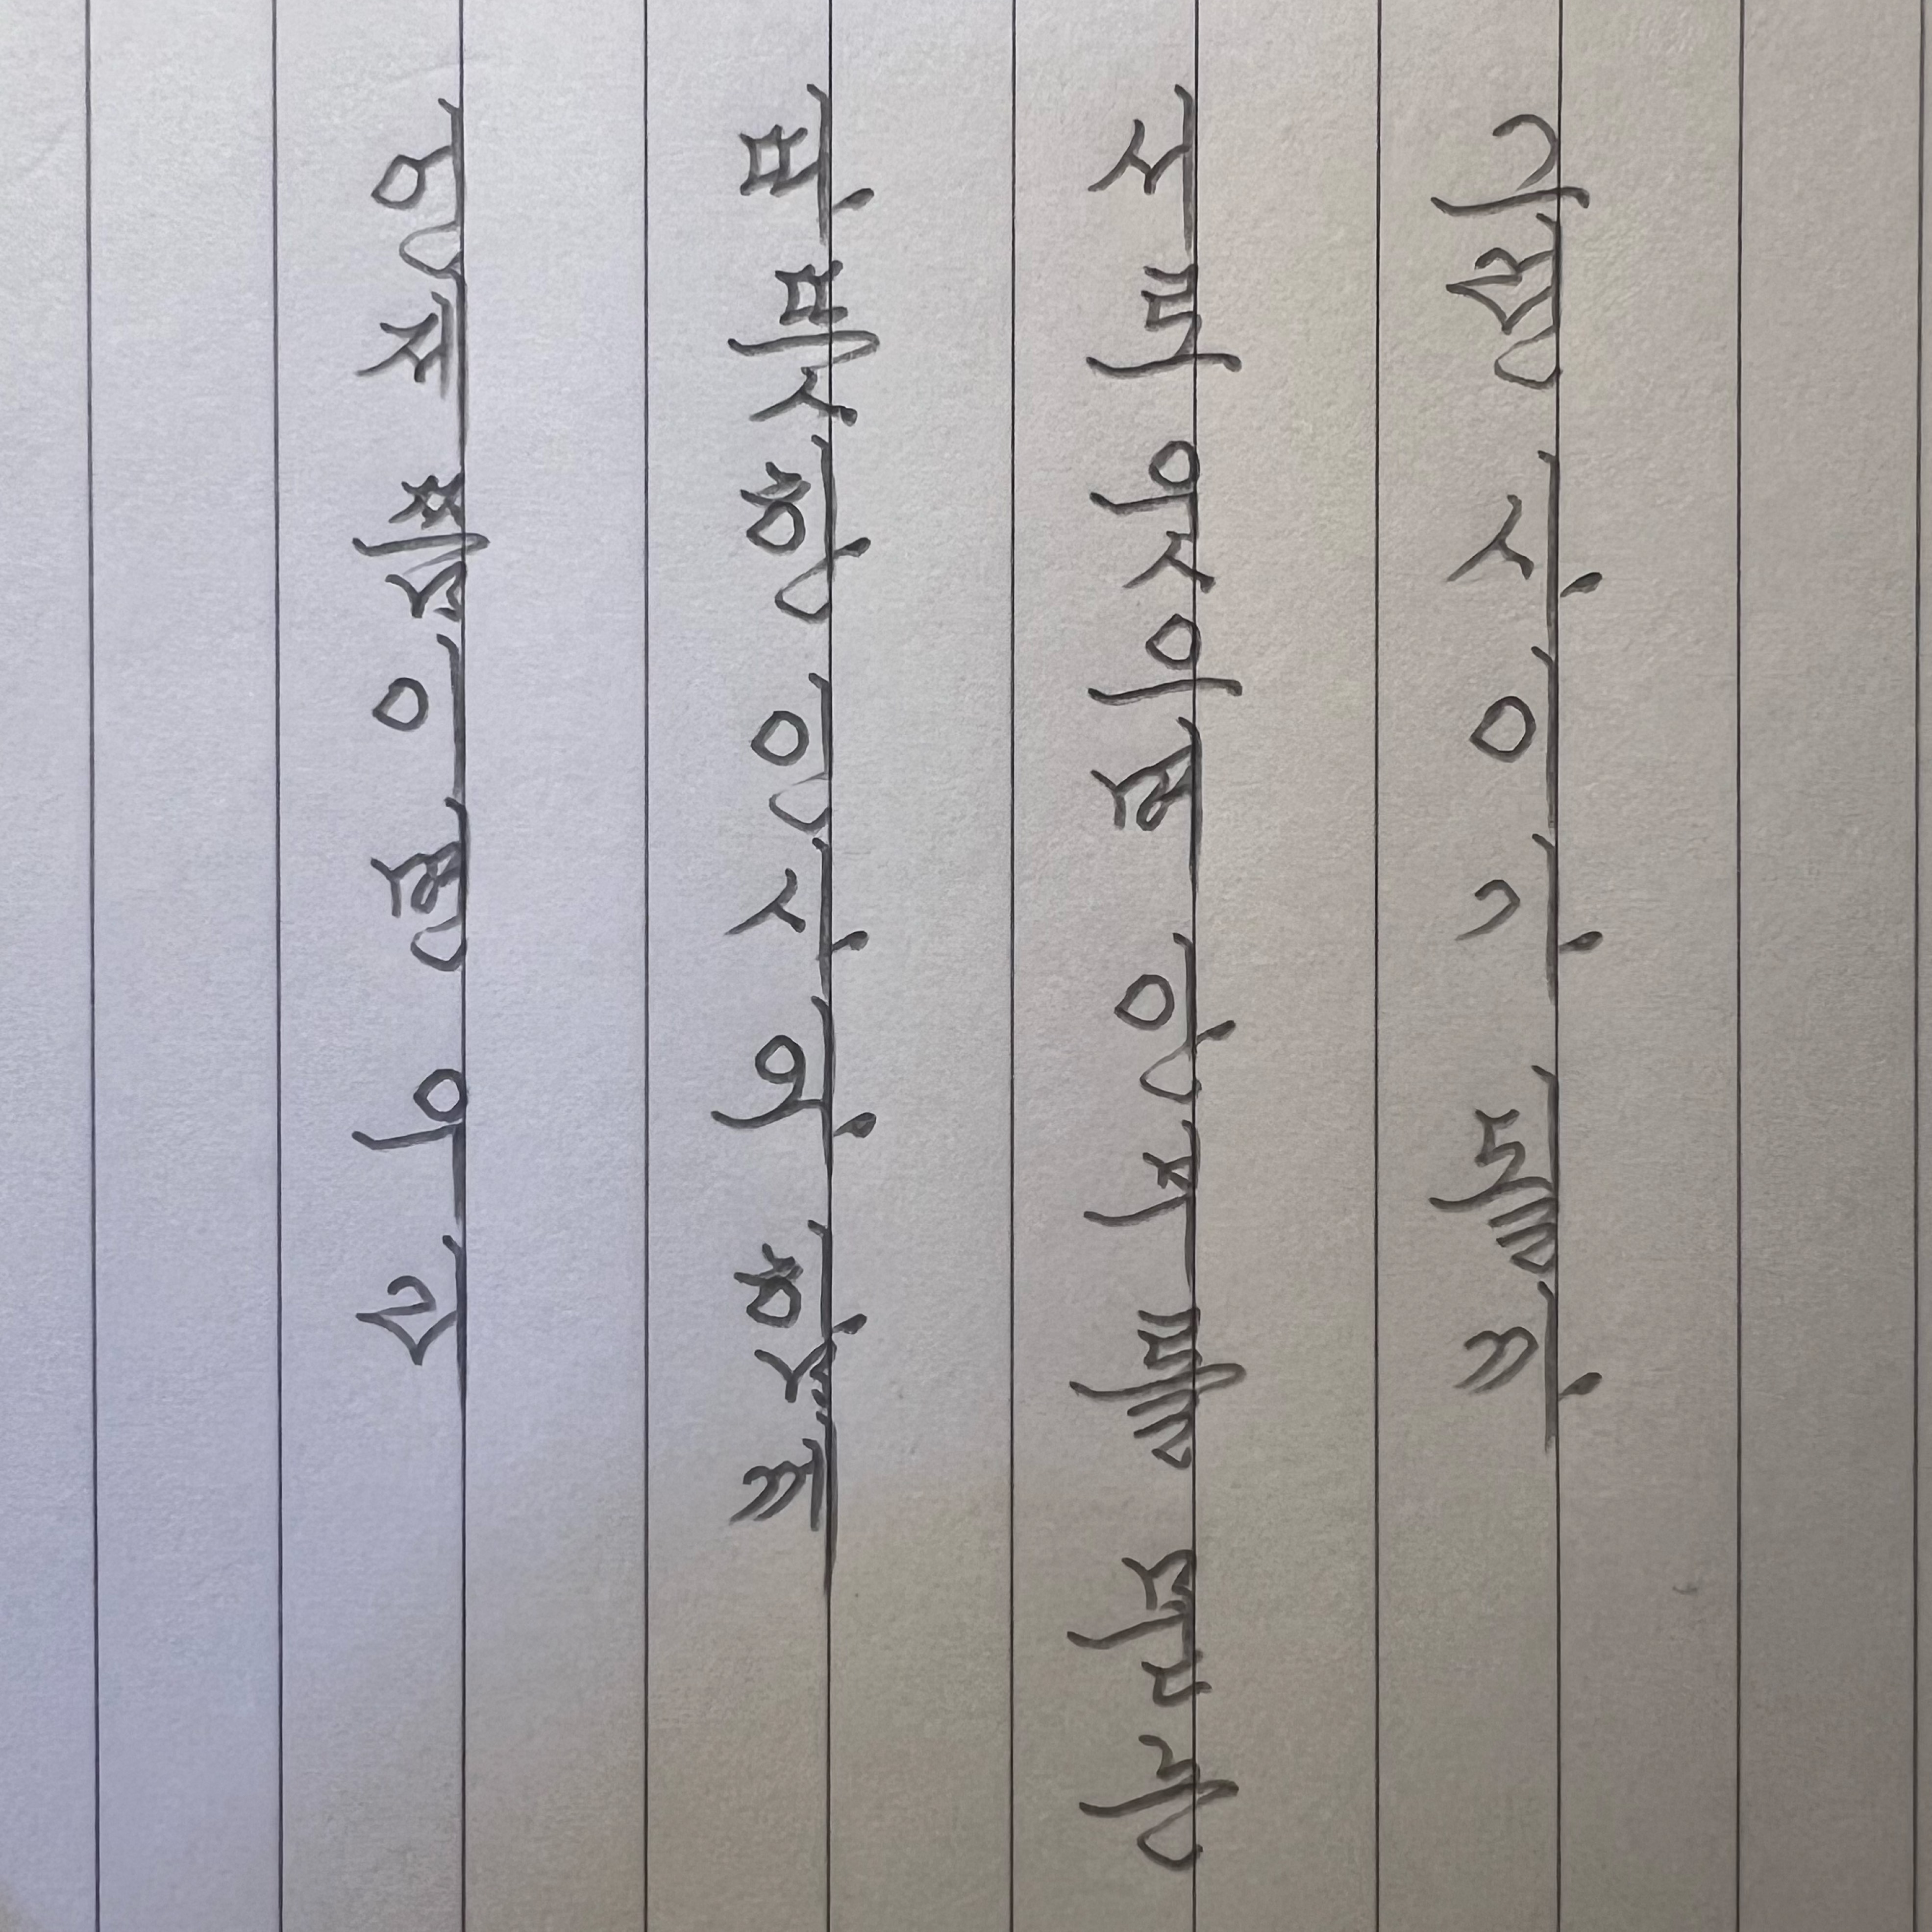 언제쯤이면 우리
따뜻한 인사와 함께
서로 웃으며 안부를 묻는
그런 사이가 될까